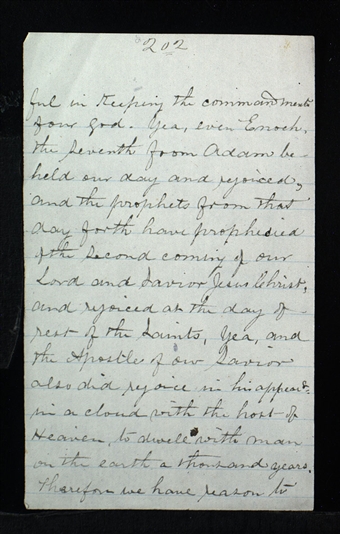 202
ful in keeping the commandments
of our God. Yea, even Enoch,
the seventh from Adam be-
held our day and rejoiced,
and the prophets from that
day forth have prophecied
of the second coming of our
Lord and Savior Jesus Christ,
and rejoiced at the day of
rest of the Saints, Yea, and
the Apostle of our Savior
also did rejoice in his appear-
in a cloud with the host of
Heaven, to dwell with man
on the earth a thousand years.
Therefore we have reason to